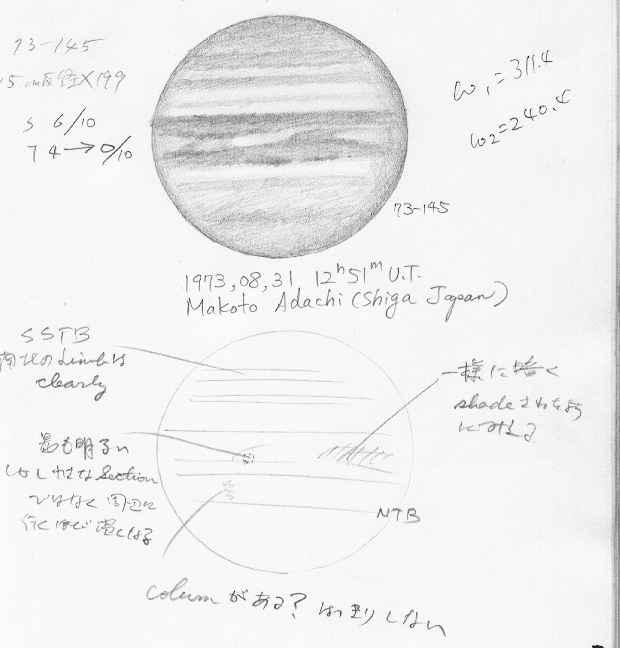 73-145
5cm反 X199
S 6/10
T 4→0/10
ω1=311.4
ω2=240.4
73-145
1973,08,31 12h51m U.T.
Makoto Adachi (Shiga Japan)
SSTB
南北のLimbは
clearly
一様に暗く
shadeされたように
みえる
最も明るい
しかし Section
ではなく周辺に
行くほど暗くなる
NTB
columがある? はっきりしない